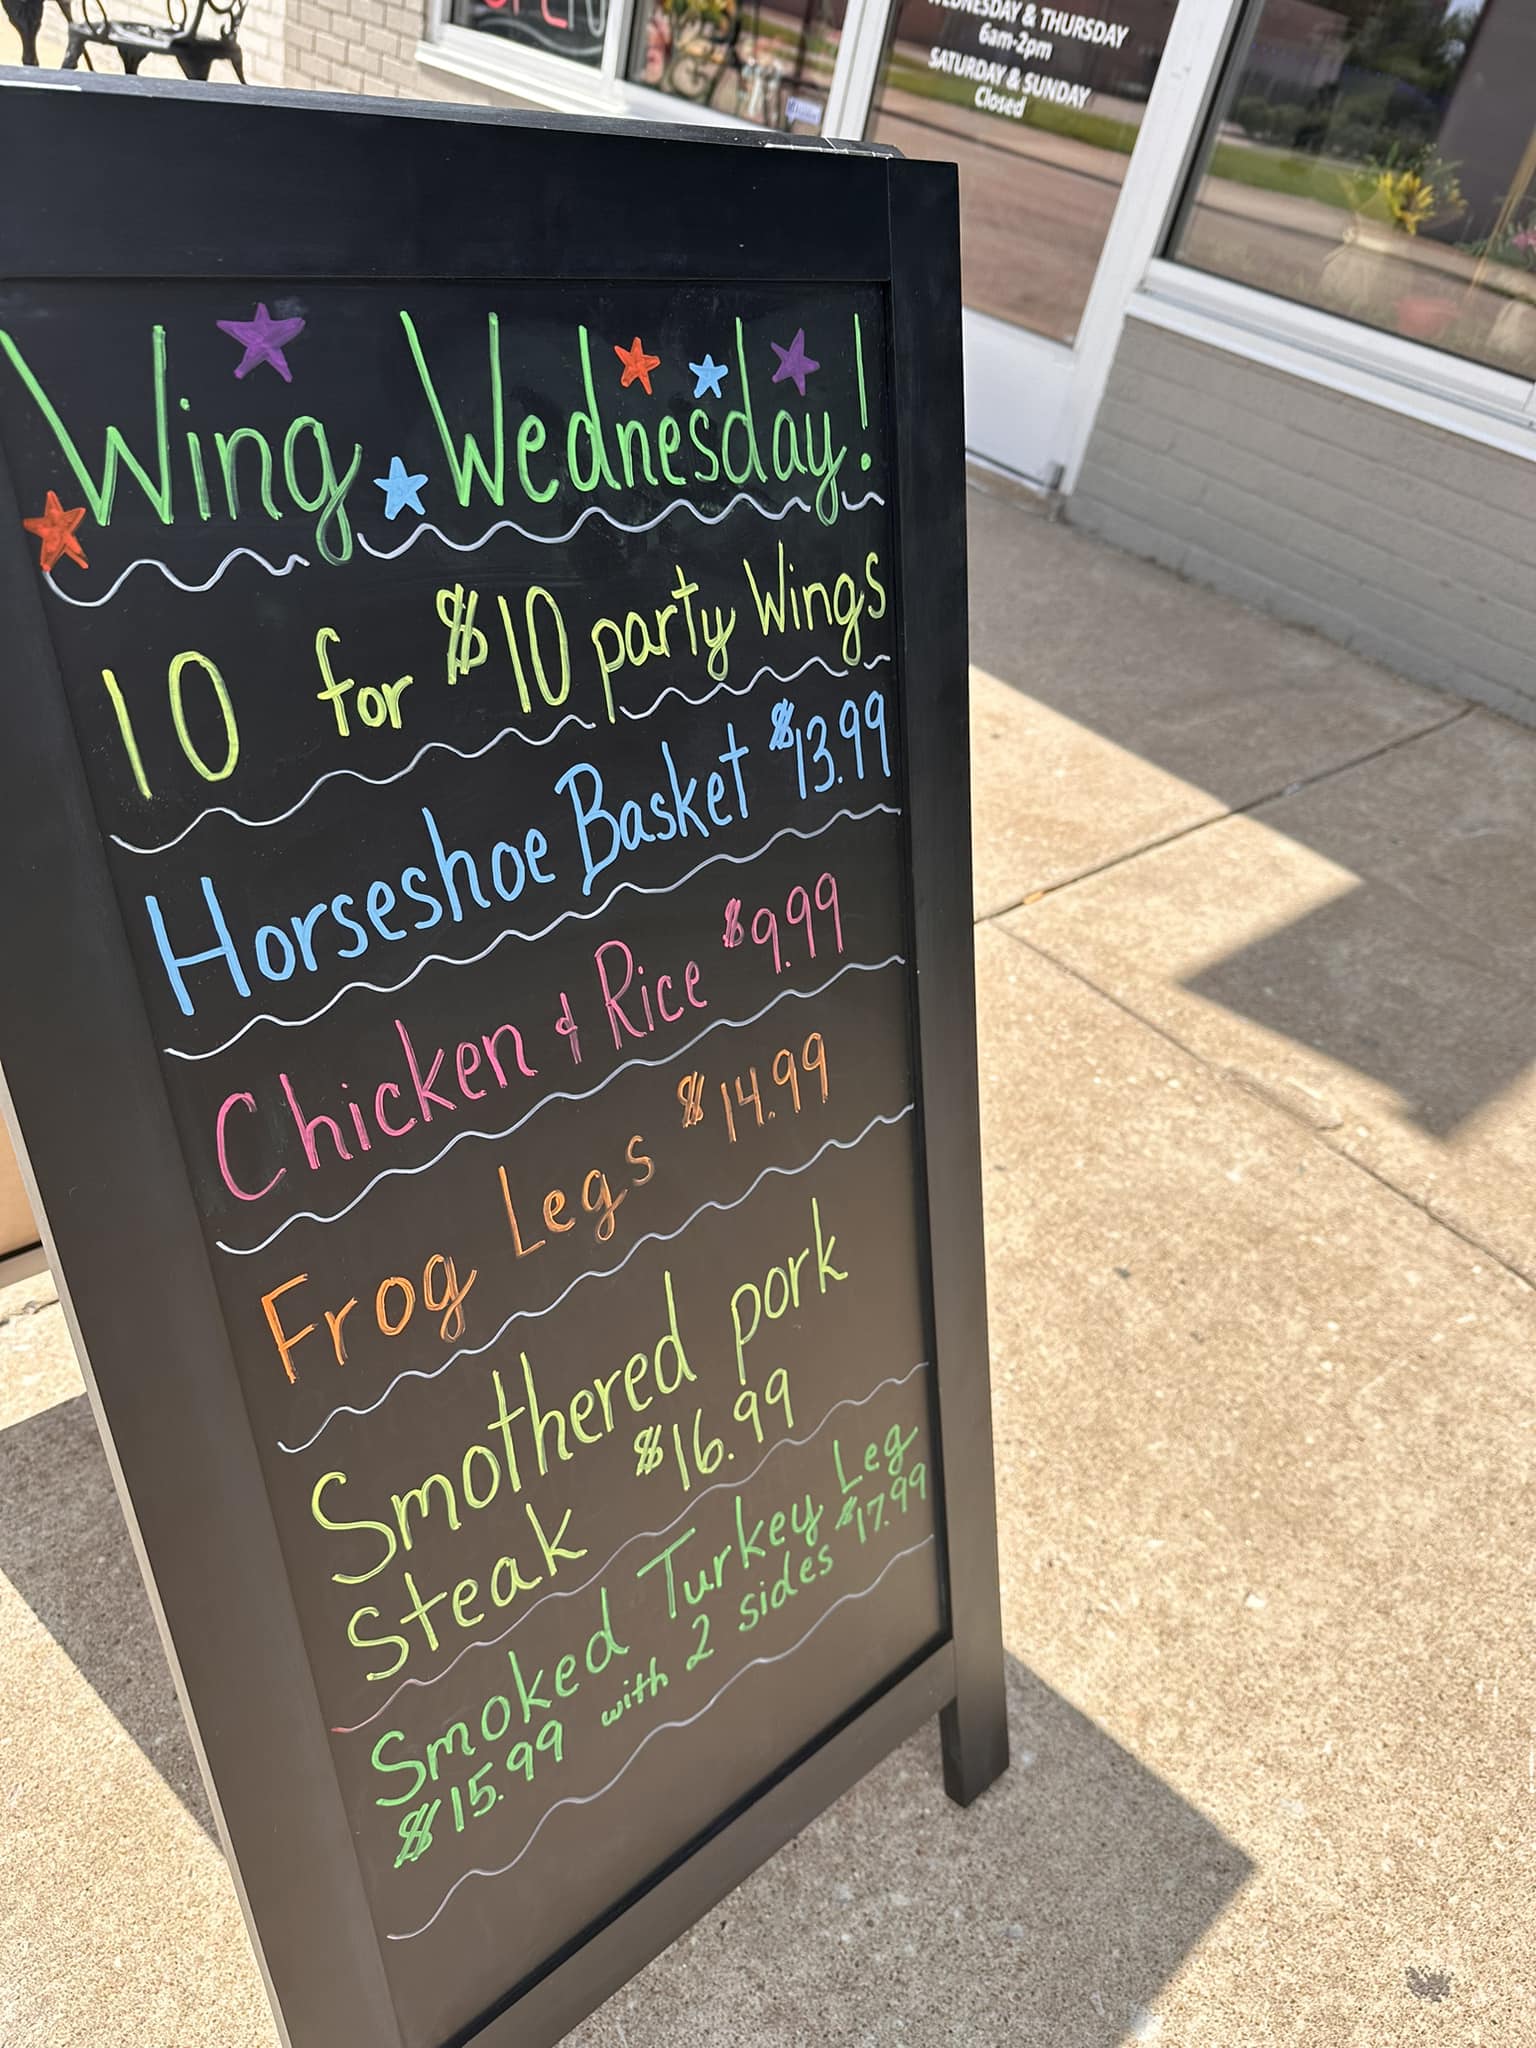 WEDNESDAY & THURSDAY
6am-2pm
SATURDAY & SUNDAY
Closed
Wing Wednesday!
10 for $10 party Wings
Horseshoe Basket $13.99
Chicken & Rice $9.99
Frog Legs $14.99
Smothered pork
Steak $16.99
Smoked Turkey Leg
$15.99 with 2 sides $17.99